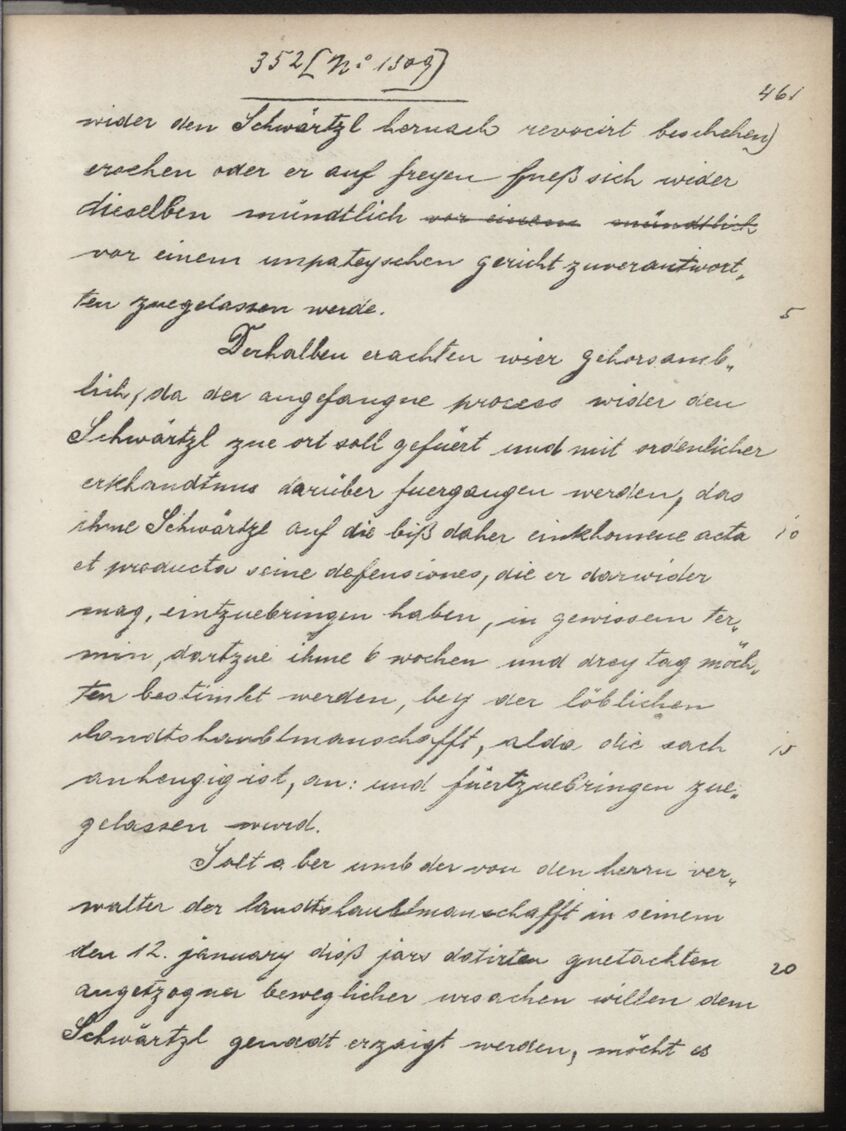 352 [No 1309]
461
wider den Schwärtzl hernach revocirt beschehen)
erochen oder er auf freyen fueß sich wider
dieselben mündtlich vor einem mündtlich
vor einem unpateyschen gericht zuverantwort„
ten zuegelassen werde. 5
Derhalben erachten wier gehorsamb„
lich, da der angefangne process wider den
Schwärtzl zue ort soll gefüert und mit ordenlicher
erkhandtnus darüber fuergangen werden, das
ihme Schwärtzl auf die biß daher einkhomene acta 10
et producta seine defensiones, die er darwider
mag, eintzuebringen haben, in gewissem ter„
min, dartzue ihme 6 wochen und drey tag möch„
ten bestimbt werden, bey der löblichen
landtshaubtmanschafft, alda die sach 15
anhengig ist, an: und füertzuebringen zue„
gelassen wurd.
Solt aber umb der von den herrn ver„
walter der landtshaubtmanschafft in seinem
den 12. january diß jars datirten guetachten 20
angetzogner beweglicher ursachen willen dem
Schwärtzl genadt erzaigt werden, möcht es